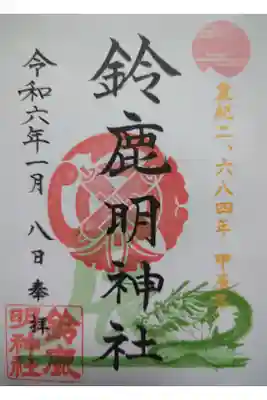 皇紀二、六八四年 甲辰
鈴鹿明神社
令和六年一月 八日 奉拝
鈴鹿
明神社